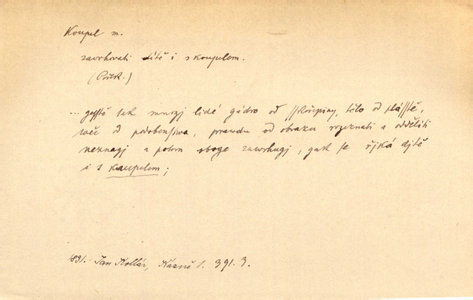 Koupel m.
zavrhovati dítě i s koupelem.
(Pořk.)
... gesstě tak mnozj lidé gádro od sskořepiny, tělo od pláště,
wěc od podobenstwa, prawdu od obrazu rozeznati a odděliti
neznagj a potom oboge zawrhugj, gak se řjká djtě
i s kaupelem;
1831. Jan Kollár, Kázně I. 391. 3.